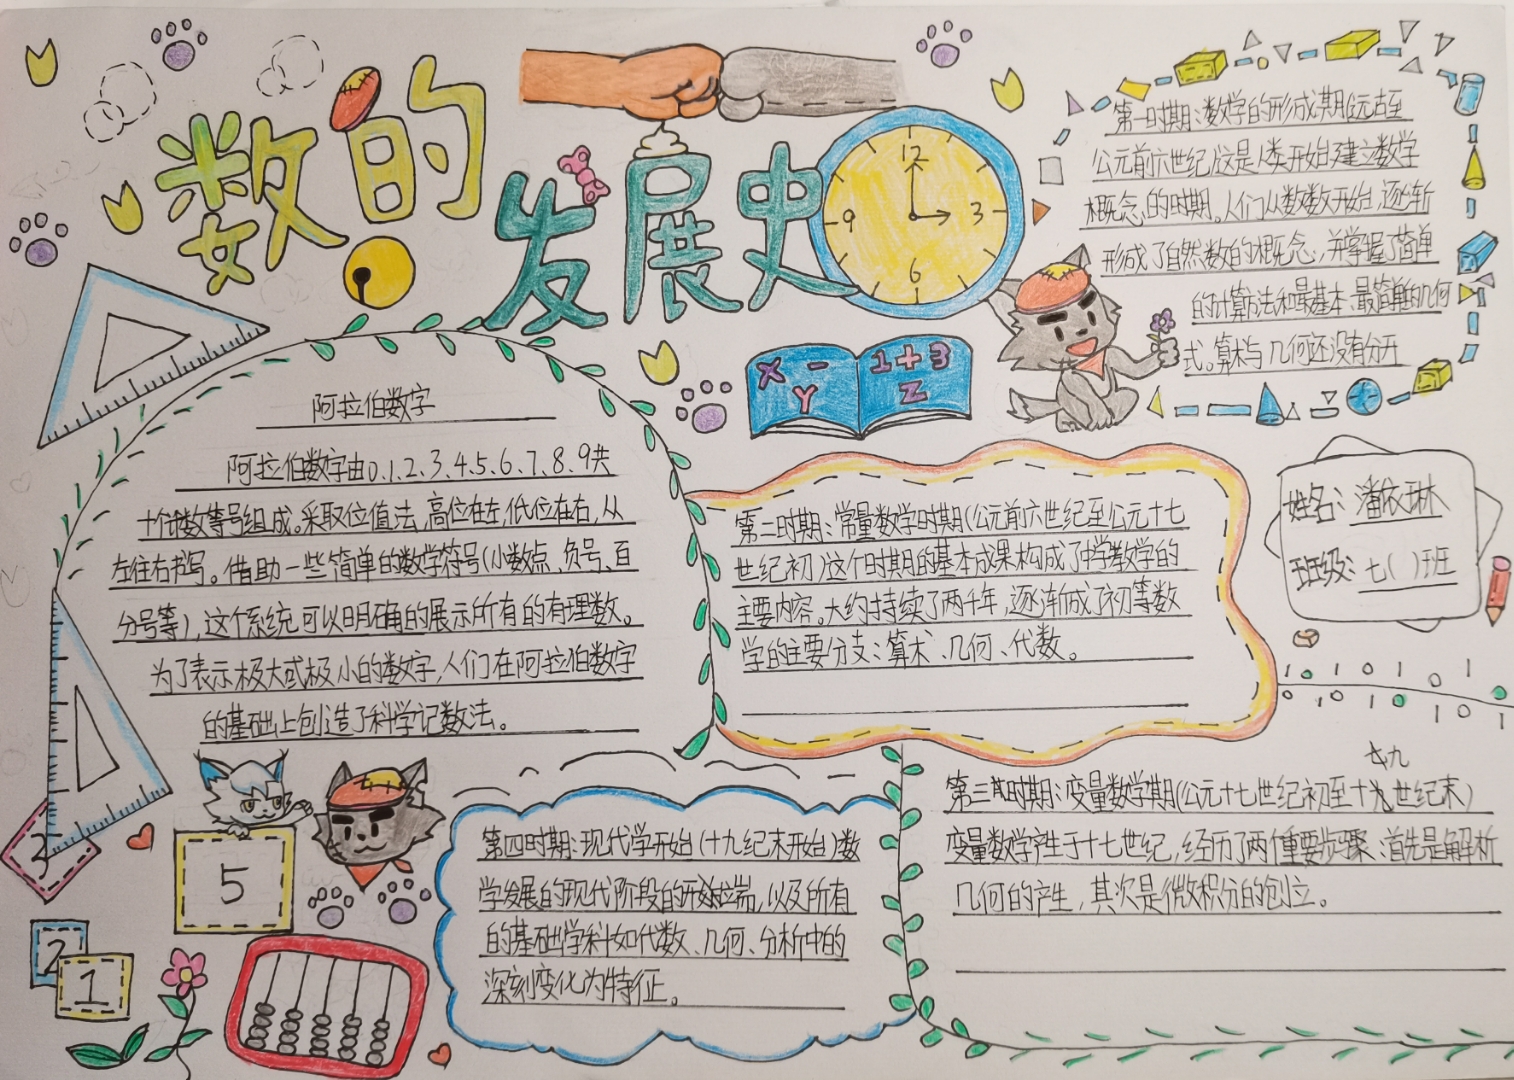 数的
发展史
12
3
6
9
X - Y
1+3
Z
第一时期:数学的形成期(远古至
公元前六世纪)这是人类开始建立数学
概念的时期。人们从数数开始逐渐
形成了自然数的概念,并掌握了简单
的计算法和最基本、最简单的几何
式。算术与几何还没有分开
阿拉伯数字
阿拉伯数字由0、1、2、3、4、5、6、7、8、9共
十个数等号组成。采取位值法,高位在左,低位在右,从
左往右书写。借助一些简单的数学符号(小数点、负号、百
分号等),这个系统可以明确的展示所有的有理数。
为了表示极大或极小的数字,人们在阿拉伯数字
的基础上创造了科学记数法。
第二时期:常量数学时期(公元前六世纪至公元十七
世纪初)这个时期的基本成果构成了中学数学的
主要内容。大约持续了两千年,逐渐成了初等数
学的主要分支:算术、几何、代数。
姓名:潘依琳
班级:七( )班
1 0 1 0 1 0
0 1 0 1 0 1 0
第三时期:变量数学期(公元十七世纪初至十九世纪末)
变量数学产生于十七世纪,经历了两个重要步骤:首先是解析
几何的产生,其次是微积分的创立。
第四时期:现代学开始(十九纪末开始)数
学发展的现代阶段的开端,以及所有
的基础学科如代数、几何、分析中的
深刻变化为特征。
3
5
2
1